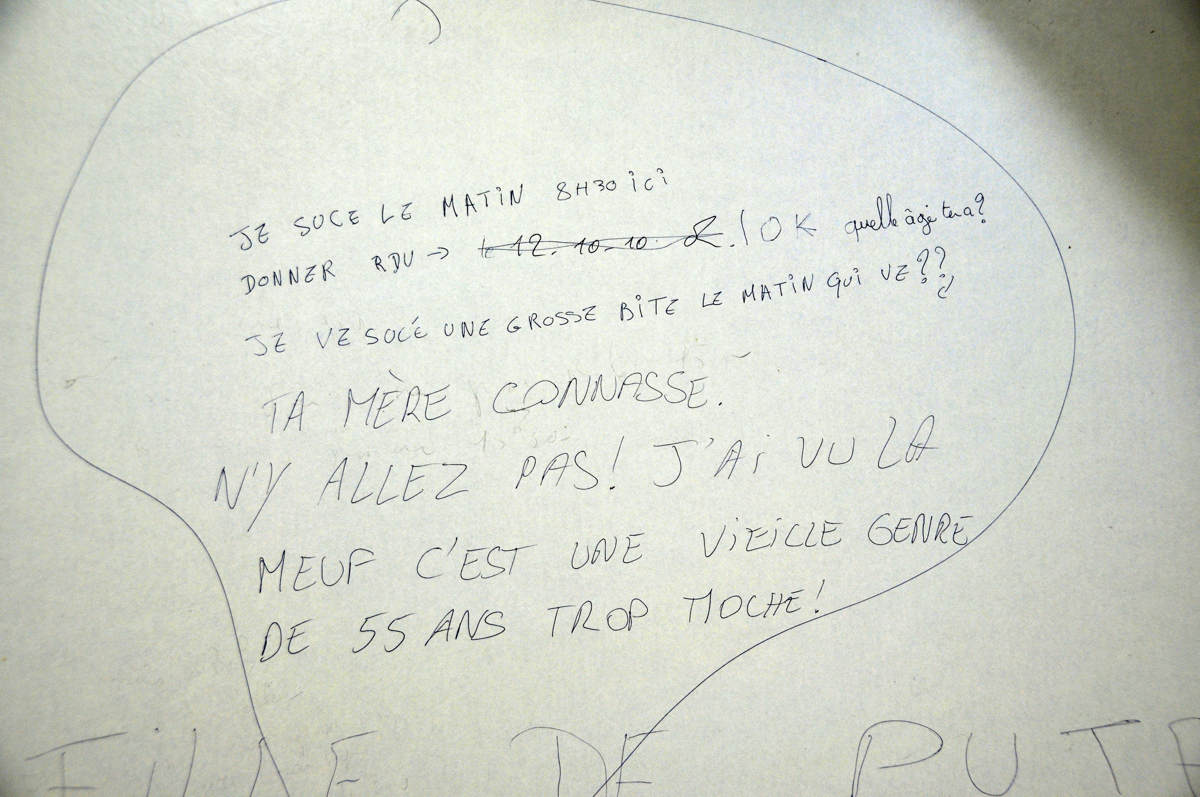 JE SUCE LE MATIN 8H30 ici
DONNER RDU → 12.10.10. OK quelle âge tu a?
JE VE SUCÉ UNE GROSSE BITE LE MATIN QUI VE??
TA MÈRE CONNASSE.
N'Y ALLEZ PAS! J'Ai VU LA
MEUF C'EST UNE ViEiLLE GENRE
DE 55 ANS TROP MOCHE!
DE PUTE